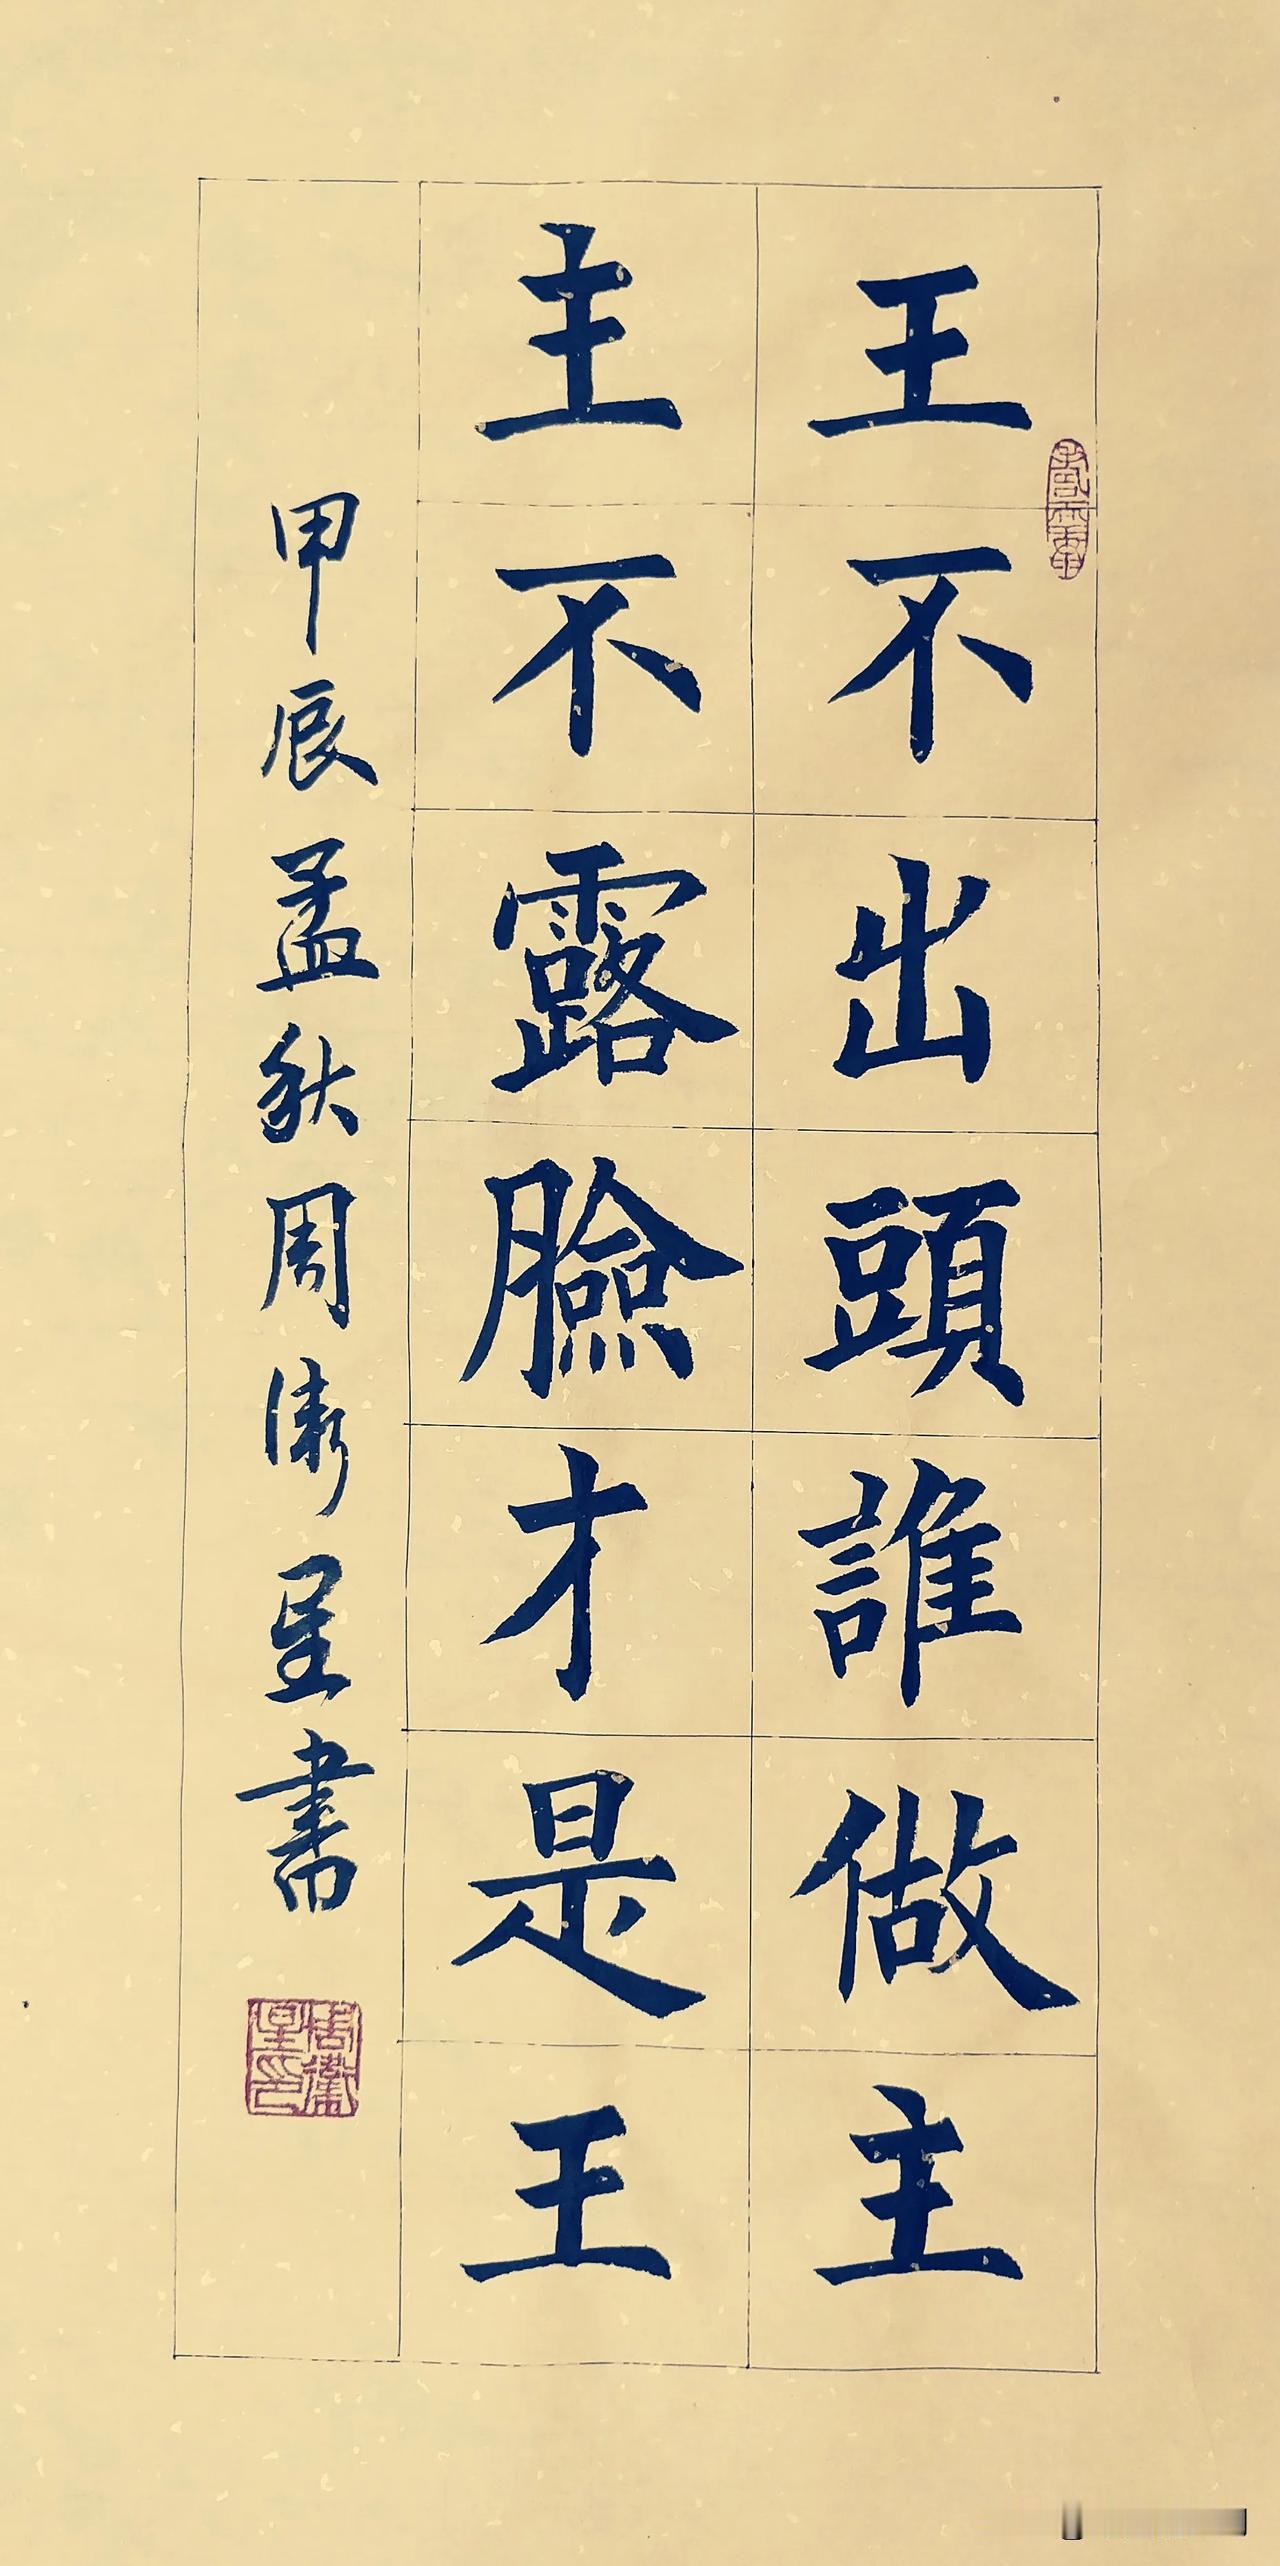 王不出頭誰做主
主不露臉才是王
甲辰孟秋周衛星書